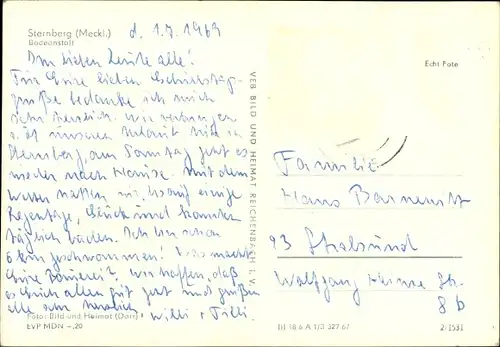 Sternberg (Meckl.)
Badeanstalt
d. 1.7.1969
Ihr lieben Leute alle!
Für Eure lieben
grüße bedanke ich mich
sehr herzlich. Wir verbringen
unseren Urlaub hier in
Sternberg, am Samstag geht es
wieder nach Hause. Mit dem
Wetter hatten wir, bis auf einige
Regentage, Glück und konnten
täglich baden. Ich bin schon
6 km geschwommen! Was macht
Eure ? Wir hoffen, daß
es Euch allen gut geht und grüßen
alle sehr herzlich
Willi + Tilli.
Foto: Bild und Heimat (Darr)
EVP MDN -,20
VEB BILD UND HEIMAT REICHENBACH I. V.
Echt Foto
Familie
Hans
93 Stralsund
Wolfgang Heinze Str.
8 b
III 18 6 A 1/3 327 67
2/1531